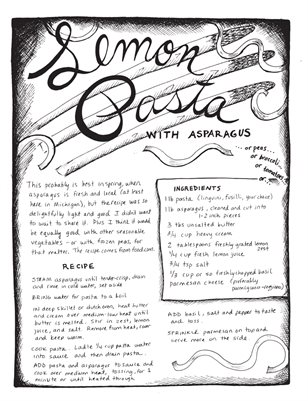 Lemon
Pasta
WITH ASPARAGUS
... or peas...
or broccoli,
or tomatoes,
or
This probably is best in spring, when
asparagus is fresh and local (at least
here in Michigan), but the recipe was so
delightfully light and good I didn't
want to wait to share it. Plus I think it would
be equally good with other seasonable
vegetables - or with frozen peas, for
that matter. The recipe comes from food.com.
RECIPE
STEAM asparagus until tender-crisp, drain
and rinse in cold water, set aside
BRING water for pasta to a boil
IN deep skillet or dutch oven, heat butter
and cream over medium-low heat until
butter is melted. Stir in zest, lemon
juice, and salt. Remove from heat, cover
and keep warm.
COOK pasta. Ladle 1/4 cup pasta water
into sauce and then drain pasta.
ADD pasta and asparagus to sauce and
cook over medium heat, tossing, for 1
minute or until heated through.
INGREDIENTS
1 lb pasta (linguini, fusilli, your choice)
1 lb asparagus, cleaned and cut into
1-2 inch pieces
3 tbs unsalted butter
3/4 cup heavy cream
2 tablespoons freshly grated lemon
zest
1/4 cup fresh lemon juice
3/4 tsp salt
1/3 cup or so fresh chopped basil
parmesan cheese (preferably
parmigiano-reggiano)
ADD basil, salt and pepper to taste
and toss.
SPRINKLE parmesan on top and
serve more on the side.